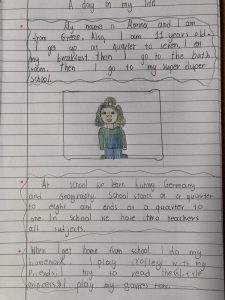 A day in my life
My name is Monna and I am
from Greec. Also, I am 11 years old.
I get up at quarter to seven. I eat
my breakfast then I go to the bath
room. Then I go to my super duper
school.
At school we learn history Germany
and Geography. School starts at a quarter
to eight and ends at a quarter to
one. In school we have two teachers
all subjects.
When I get home from school I do my
homework. I play volley with my
friends. I try to read the little
princess. I play my games too.